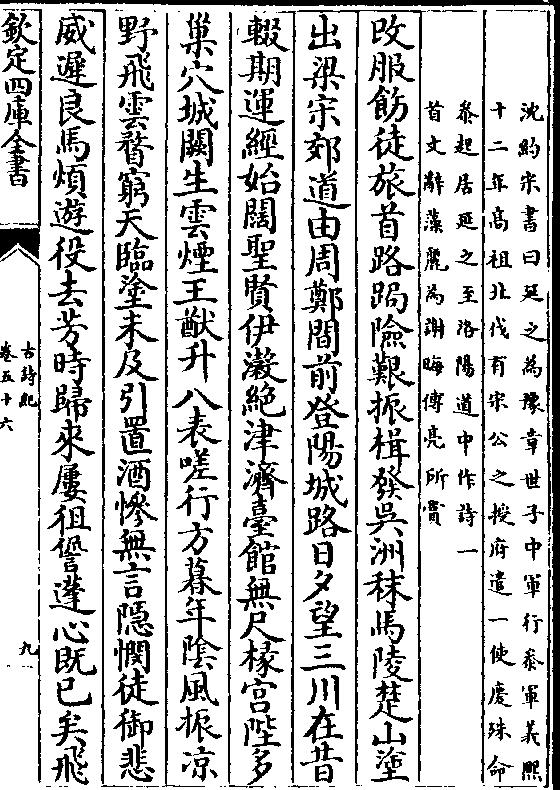 沈約宋書曰延之為豫章世子中軍行參軍義熙
十二年高祖北伐有宋公之授府遣一使慶殊命
叅起居延之至洛陽道中作詩一
首文辭藻麗為謝晦傅亮所賞
改服飭徒旅首路跼險艱振楫發吳洲秣馬陵楚山塗
出梁宋郊道由周鄭間前登陽城路日夕望三川在昔
輟期運經始闊聖賢伊瀔絶津濟臺館無尺椽宫陛多
巢穴城闕生雲煙王猷升八表嗟行方暮年陰風振凉
野飛雲瞀窮天臨塗未及引置酒慘無言隐憫徒御悲
威遲良馬煩遊役去芳時歸來屢徂諐蓬心既已矣飛
欽定四庫全書
古詩紀
卷五十六
九